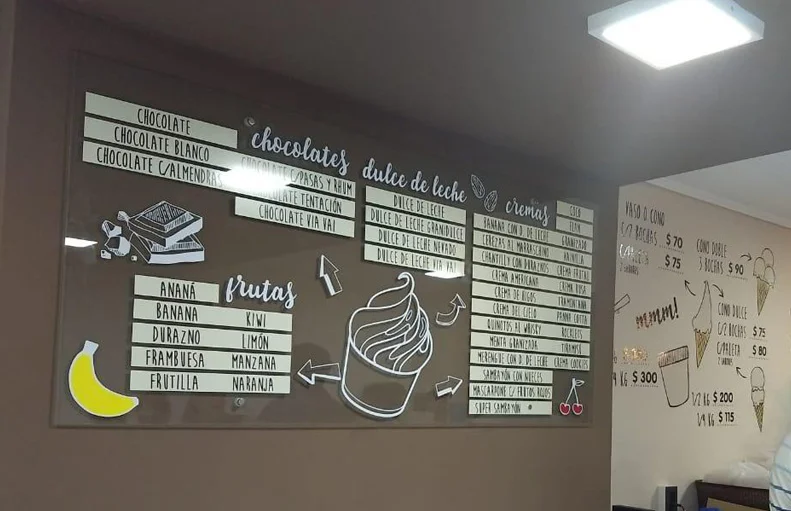 chocolates
CHOCOLATE
CHOCOLATE BLANCO
CHOCOLATE C/ALMENDRAS
CHOCOLATE C/PASAS Y RHUM
CHOCOLATE TENTACIÓN
CHOCOLATE VIA VAI
dulce de leche
DULCE DE LECHE
DULCE DE LECHE GRANDULCE
DULCE DE LECHE NEVADO
DULCE DE LECHE VIA VAI
cremas
COCO
BANANA CON D. DE LECHE
GRANIZADO
CEREZAS AL MARRASCHINO
VAINILLA
CHANTILLY CON DURAZNOS
CREMA FRUTAL
CREMA AMERICANA
CREMA RUSA
CREMA DE HIGOS
TRAMONTANA
CREMA DEL CIELO
PANNA COTTA
QUINOTOS AL WHISKY
ROCKLETS
MENTA GRANIZADA
TIRAMISÚ
MERENGUE CON D. DE LECHE
CREMA COOKIES
SAMBAYÓN CON NUECES
MASCARPONE C/ FRUTOS ROJOS
SUPER SAMBAYÓN
frutas
ANANÁ
BANANA
KIWI
DURAZNO
LIMÓN
FRAMBUESA
MANZANA
FRUTILLA
NARANJA
VASO O CONO
C/2 BOCHAS $ 70
$ 75
CONO DOBLE
3 BOCHAS $ 90
mmm!
CONO DULCE
C/2 BOCHAS $ 75
C/PALETA $ 80
KG $ 300
1/2 KG $ 200
1/4 KG $ 115